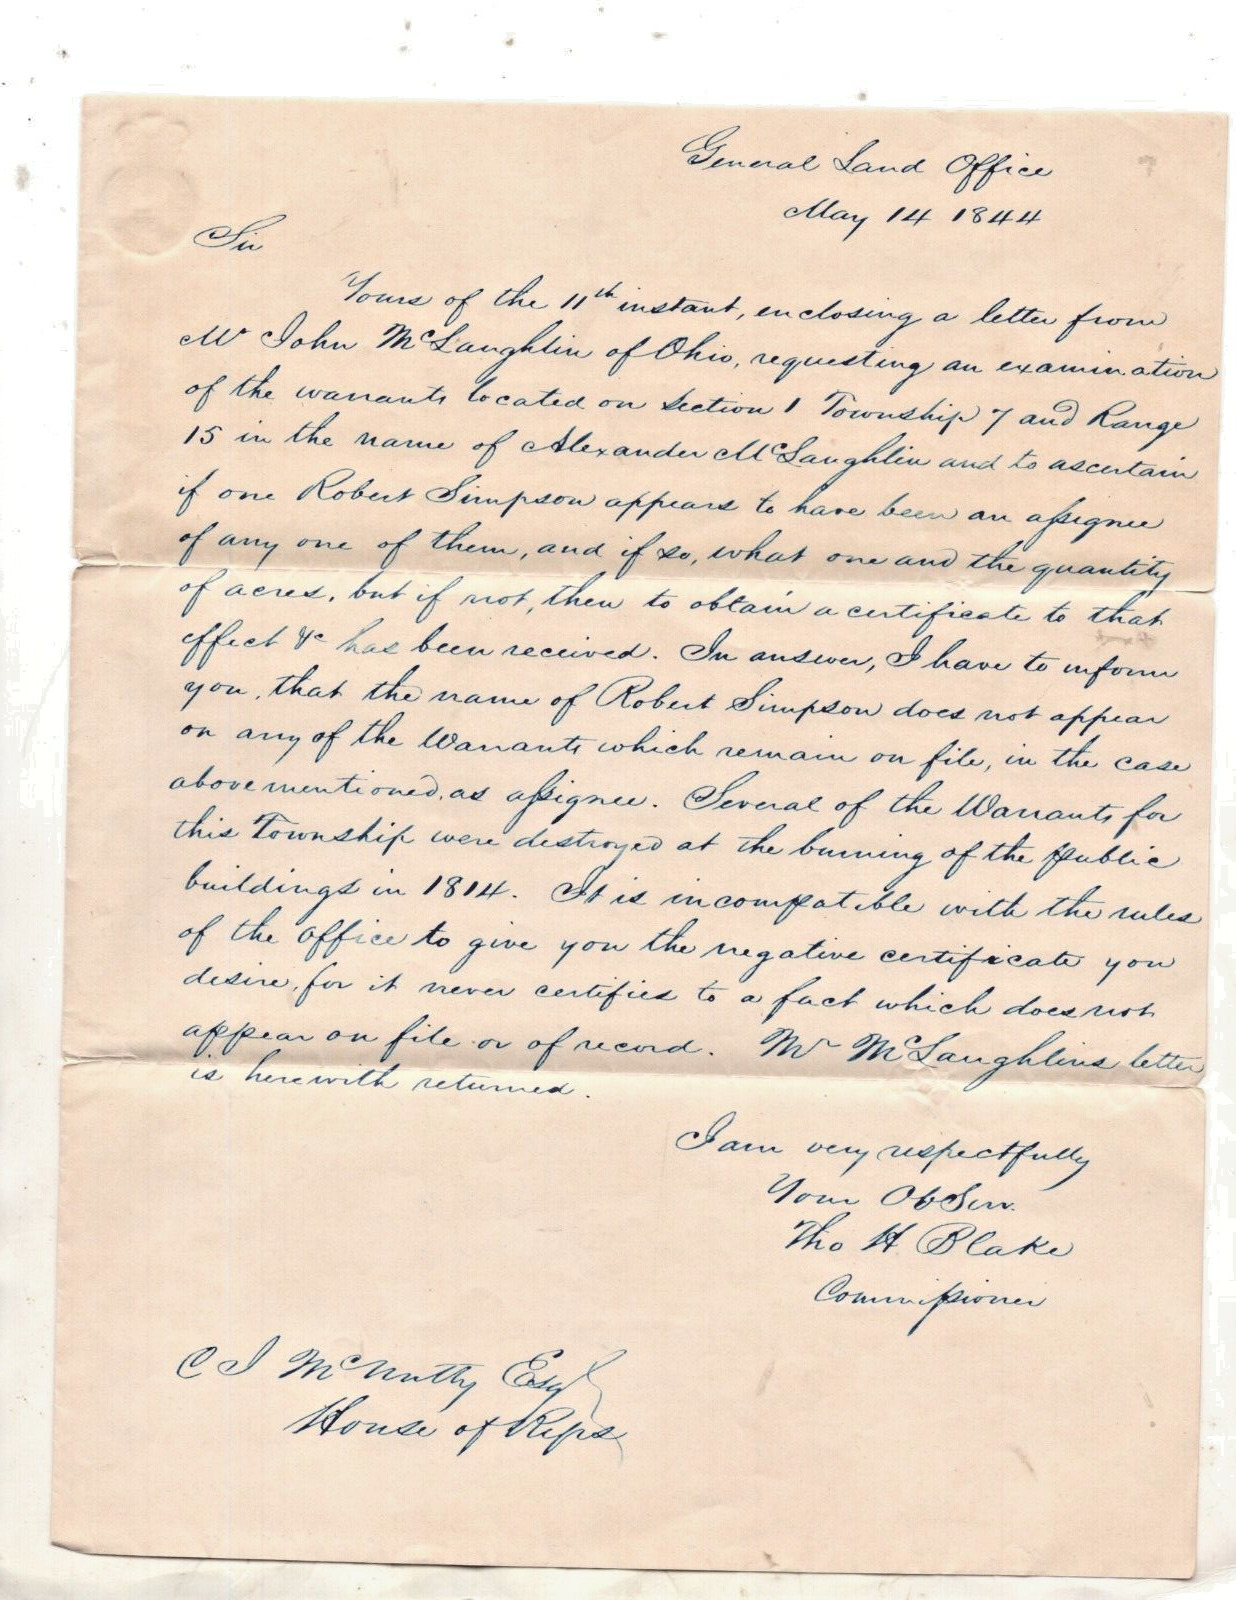 General Land Office
May 14 1844
Sir
Yours of the 11th instant, enclosing a letter from
Mr John McLaughlin of Ohio, requesting an examination
of the warrants located on Section 1 Township 7 and Range
15 in the name of Alexander McLaughlin and to ascertain
if one Robert Simpson appears to have been an assignee
of any one of them, and if so, what one and the quantity
of acres, but if not, then to obtain a certificate to that
effect &c has been received. In answer, I have to inform
you, that the name of Robert Simpson does not appear
on any of the Warrants which remain on file, in the case
above mentioned, as assignee. Several of the Warrants for
this Township were destroyed at the burning of the public
buildings in 1814. It is incompatible with the rules
of the office to give you the negative certificate you
desire, for it never certifies to a fact which does not
appear on file or of record. Mr McLaughlins letter
is herewith returned.
I am very respectfully
Your Ob Serv.
Tho H. Blake
Commissioner
C J McNutty Esq
House of Reps